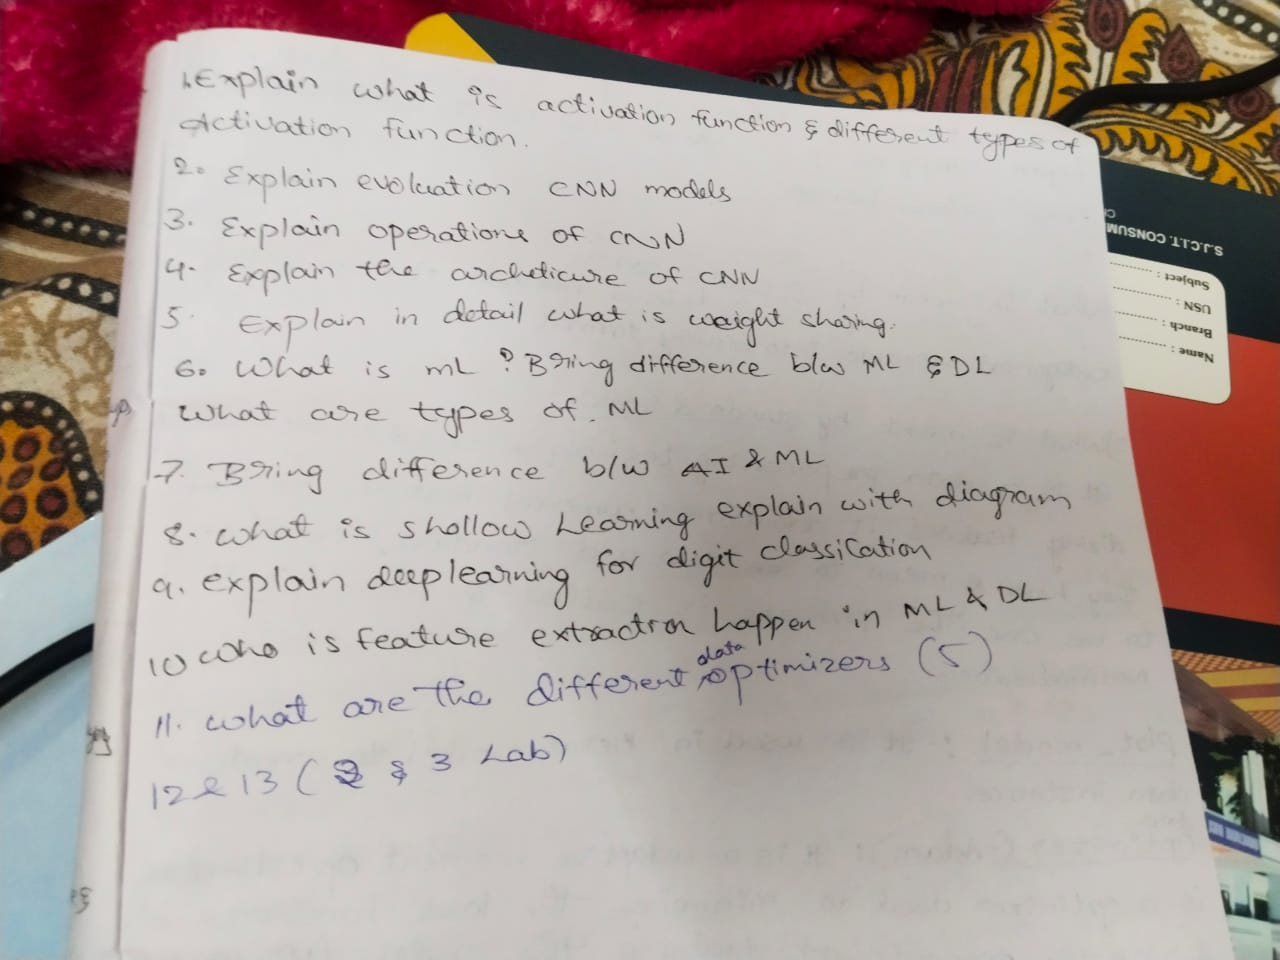 1. Explain what is activation function & different types of
Activation function.
2. Explain evoluation CNN models
3. Explain operations of CNN
4. Explain the archeticure of CNN
5. Explain in detail what is weight sharing.
6. What is mL ? Bring difference b/w ML & DL
What are types of ML
7. Bring difference b/w AI & ML
8. What is shollow Learning explain with diagram
9. explain deep learning for digit classication
10 who is feature extraction happen in ML & DL
11. What are the different data optimizers (5)
12 & 13 (2 & 3 Lab)
S.J.C.I.T. CONSUM
Subject :
USN :
Branch :
Name :